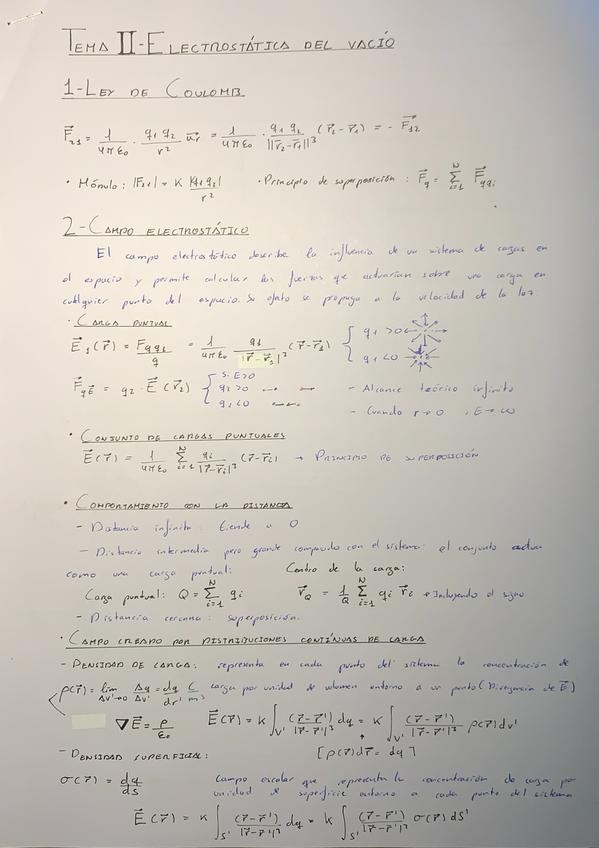 TEMA II-ELECTROSTÁTICA DEL VACÍO
1-LEY DE COULOMB
F⃗₂₁ = 1/(4πε₀) · q₁q₂/r² u⃗r = 1/(4πε₀) · q₁q₂/||r⃗₂-r⃗₁||³ (r⃗₂-r⃗₁) = -F⃗₁₂
· Módulo: |F₂₁| = K |q₁q₂|/r² · Principio de superposición: F⃗q = Σᵢ₌₁ᴺ F⃗qqᵢ
2-CAMPO ELECTROSTÁTICO
El campo electrostático describe la influencia de un sistema de cargas en
el espacio y permite calcular las fuerzas que actuarían sobre una carga en
cualquier punto del espacio. Su efecto se propaga a la velocidad de la luz
· CARGA PUNTUAL
E⃗₁(r⃗) = Fqq₁/q = 1/(4πε₀) q₁/|r⃗-r⃗₁|³ (r⃗-r⃗₁) { q₁>0 q₁<0
F⃗qE⃗ = q₂ · E⃗(r⃗₂) { si E>0 q₂>0 q₁<0
- Alcance teórico infinito
- Cuando r→0, E→∞
· CONJUNTO DE CARGAS PUNTUALES
E⃗(r⃗) = 1/(4πε₀) Σᵢ₌₁ᴺ qᵢ/|r⃗-r⃗ᵢ|³ (r⃗-r⃗ᵢ) → PRINCIPIO DE SUPERPOSICIÓN
· COMPORTAMIENTO CON LA DISTANCIA
- Distancia infinita: tiende a 0
- Distancia intermedia pero grande comparado con el sistema: el conjunto actua
como una carga puntual: Centro de la carga:
Carga puntual: Q = Σᵢ₌₁ᴺ qᵢ r⃗Q = 1/Q Σᵢ₌₁ᴺ qᵢ r⃗ᵢ * Incluyendo el signo
- Distancia cercana: superposición.
· CAMPO CREADO POR DISTRIBUCIONES CONTÍNUAS DE CARGA
- DENSIDAD DE CARGA: representa en cada punto del sistema la concentración de
ρ(r⃗) = lim Δv'→0 Δq/Δv' = dq/dv' C/m³ carga por unidad de volumen entorno a un punto (Divergencia de E⃗)
∇E⃗ = ρ/ε₀ E⃗(r⃗) = K ∫V' (r⃗-r⃗')/|r⃗-r⃗'|³ dq = K ∫V' (r⃗-r⃗')/|r⃗-r⃗'|³ ρ(r⃗) dv'
- DENSIDAD SUPERFICIAL: [ρ(r⃗)dr⃗ = dq]
σ(r⃗) = dq/ds Campo escalar que representa la concentración de carga por
unidad de superficie entorno a cada punto del sistema
E⃗(r⃗) = K ∫S' (r⃗-r⃗')/|r⃗-r⃗'|³ dq = K ∫S' (r⃗-r⃗')/|r⃗-r⃗'|³ σ(r⃗) dS'